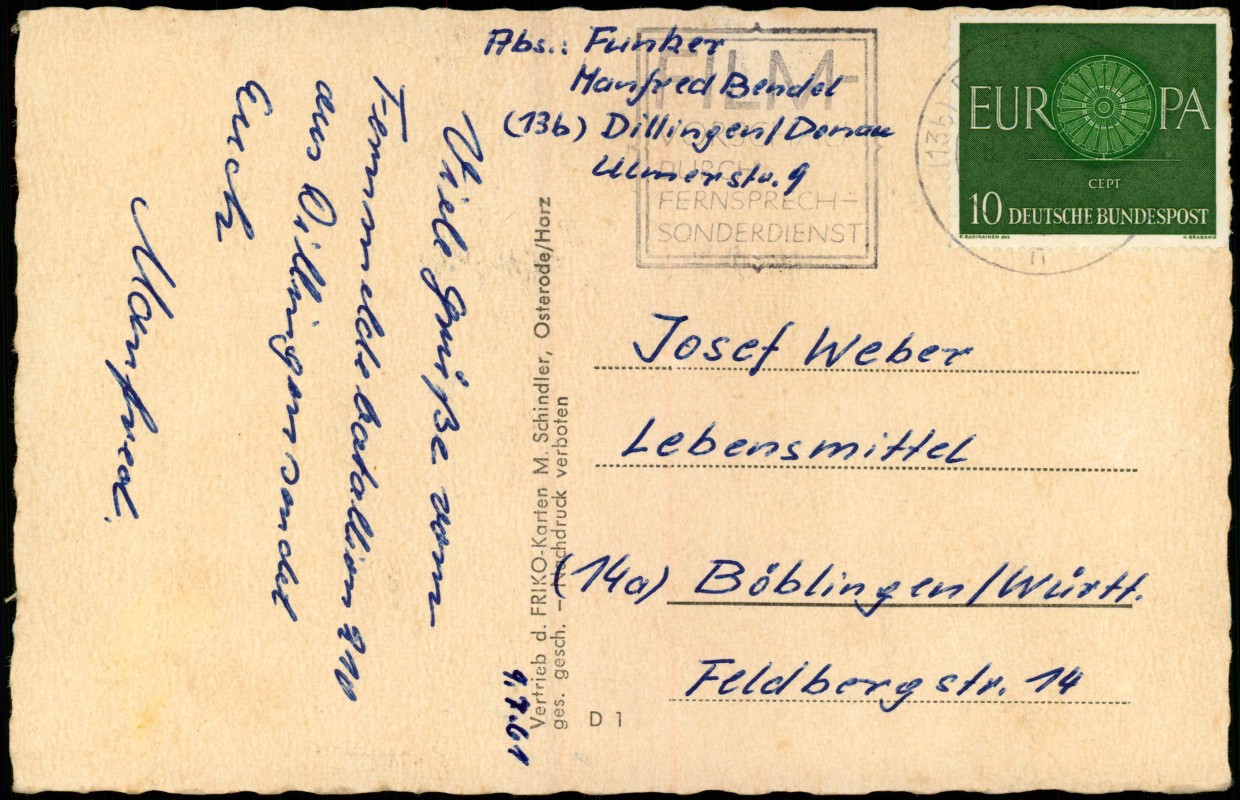 Abs.: Funker
Manfred Bendel
(13b) Dillingen/Donau
Ulmerstr. 9
FILM-
VORSCHAU
DURCH
FERNSPRECH-
SONDERDIENST
(13b)
n
EUROPA
CEPT
10 DEUTSCHE BUNDESPOST
Viele Grüße vom
Fernmeldebatallion 210
aus Dillingen sendet
Euch
Manfred.
9.7.61
Vertrieb d. FRIKO-Karten M. Schindler, Osterode/Harz
ges. gesch. – Nachdruck verboten
D 1
Josef Weber
Lebensmittel
(14a) Böblingen/Württ.
Feldbergstr. 14